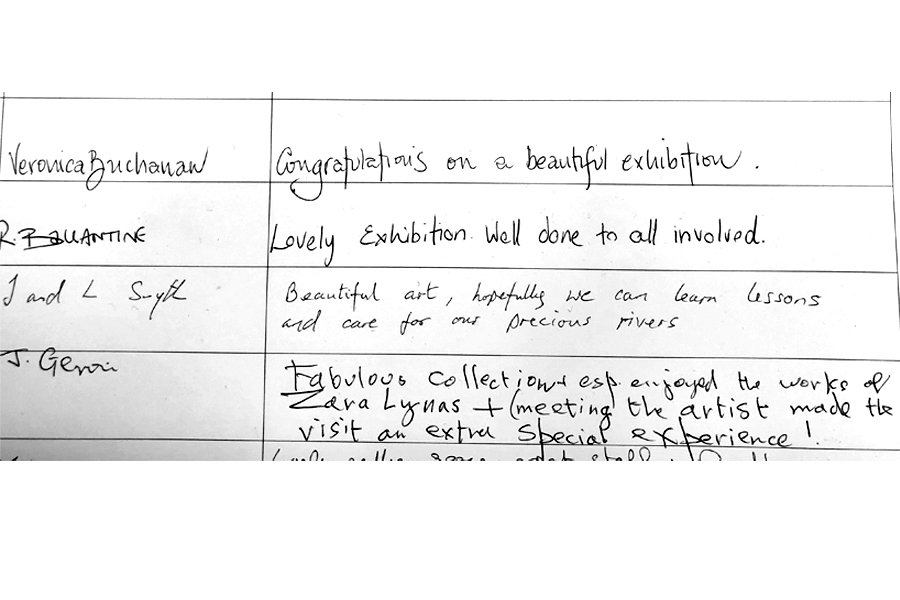 Veronica Buchanan
Congratulations on a beautiful exhibition.
R. BALLANTINE
Lovely Exhibition. Well done to all involved.
J and L Smyth
Beautiful art, hopefully we can learn lessons
and care for our precious rivers
J.
Fabulous collection + esp. enjoyed the works of
Zara Lynas + (meeting) the artist made the
visit an extra special experience!